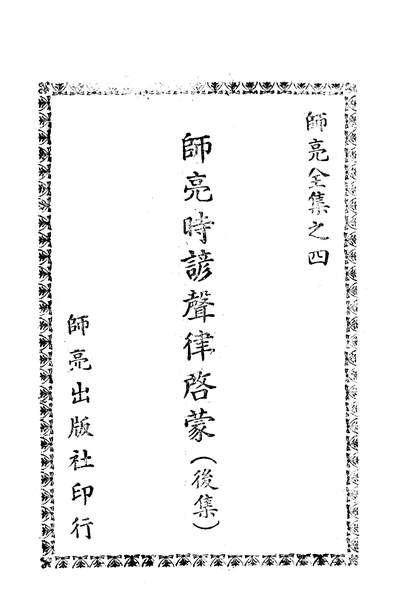 師亮全集之四
師亮時諺聲律啓蒙(後集)
師亮出版社印行